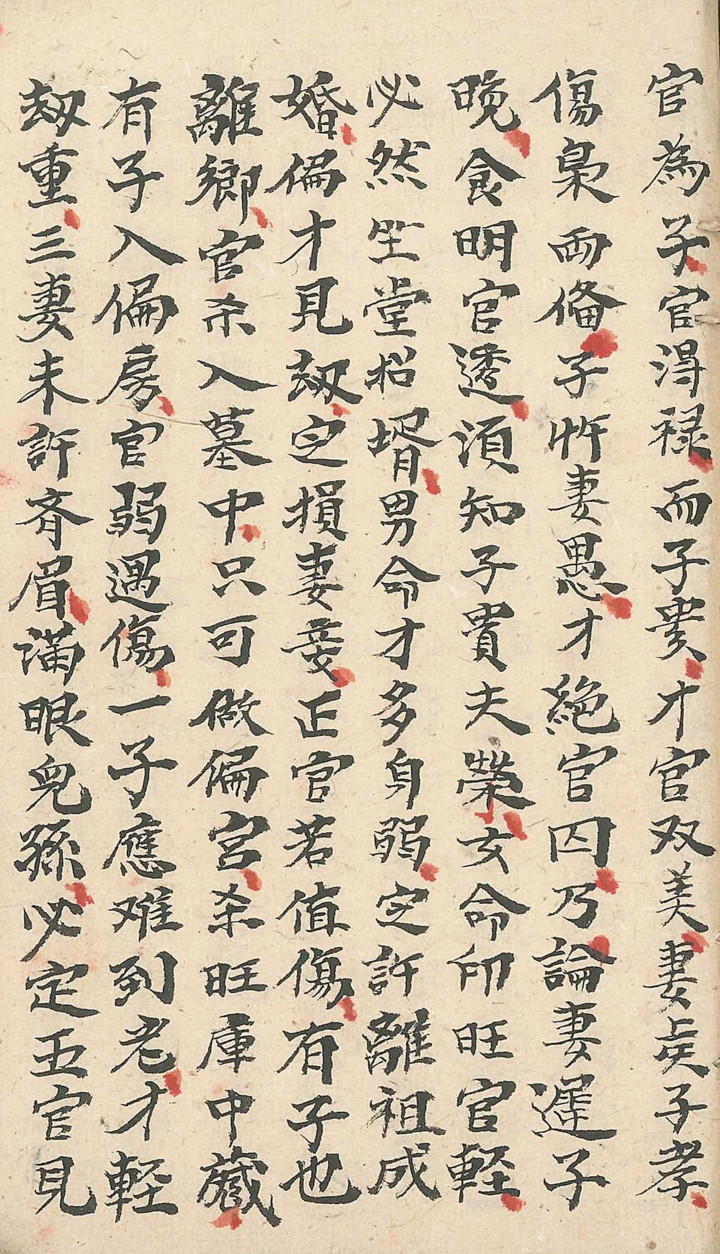 官為子官淂禄而子貴才官双美妻贤子孝
傷梟両偹子忤妻愚才絶官囚乃論妻遲子
晚食明官透須知子貴夫榮女命印旺官軽
必然坐堂招壻男命才多身弱定許離祖成
婚偏才見刼定損妻妾正官若值傷有子也
離鄉官杀入墓中只可做偏宫杀旺庫中藏
有子入偏房官弱遇傷一子應难到老才軽
刼重三妻未許斉眉滿眼兒孫必定五官見